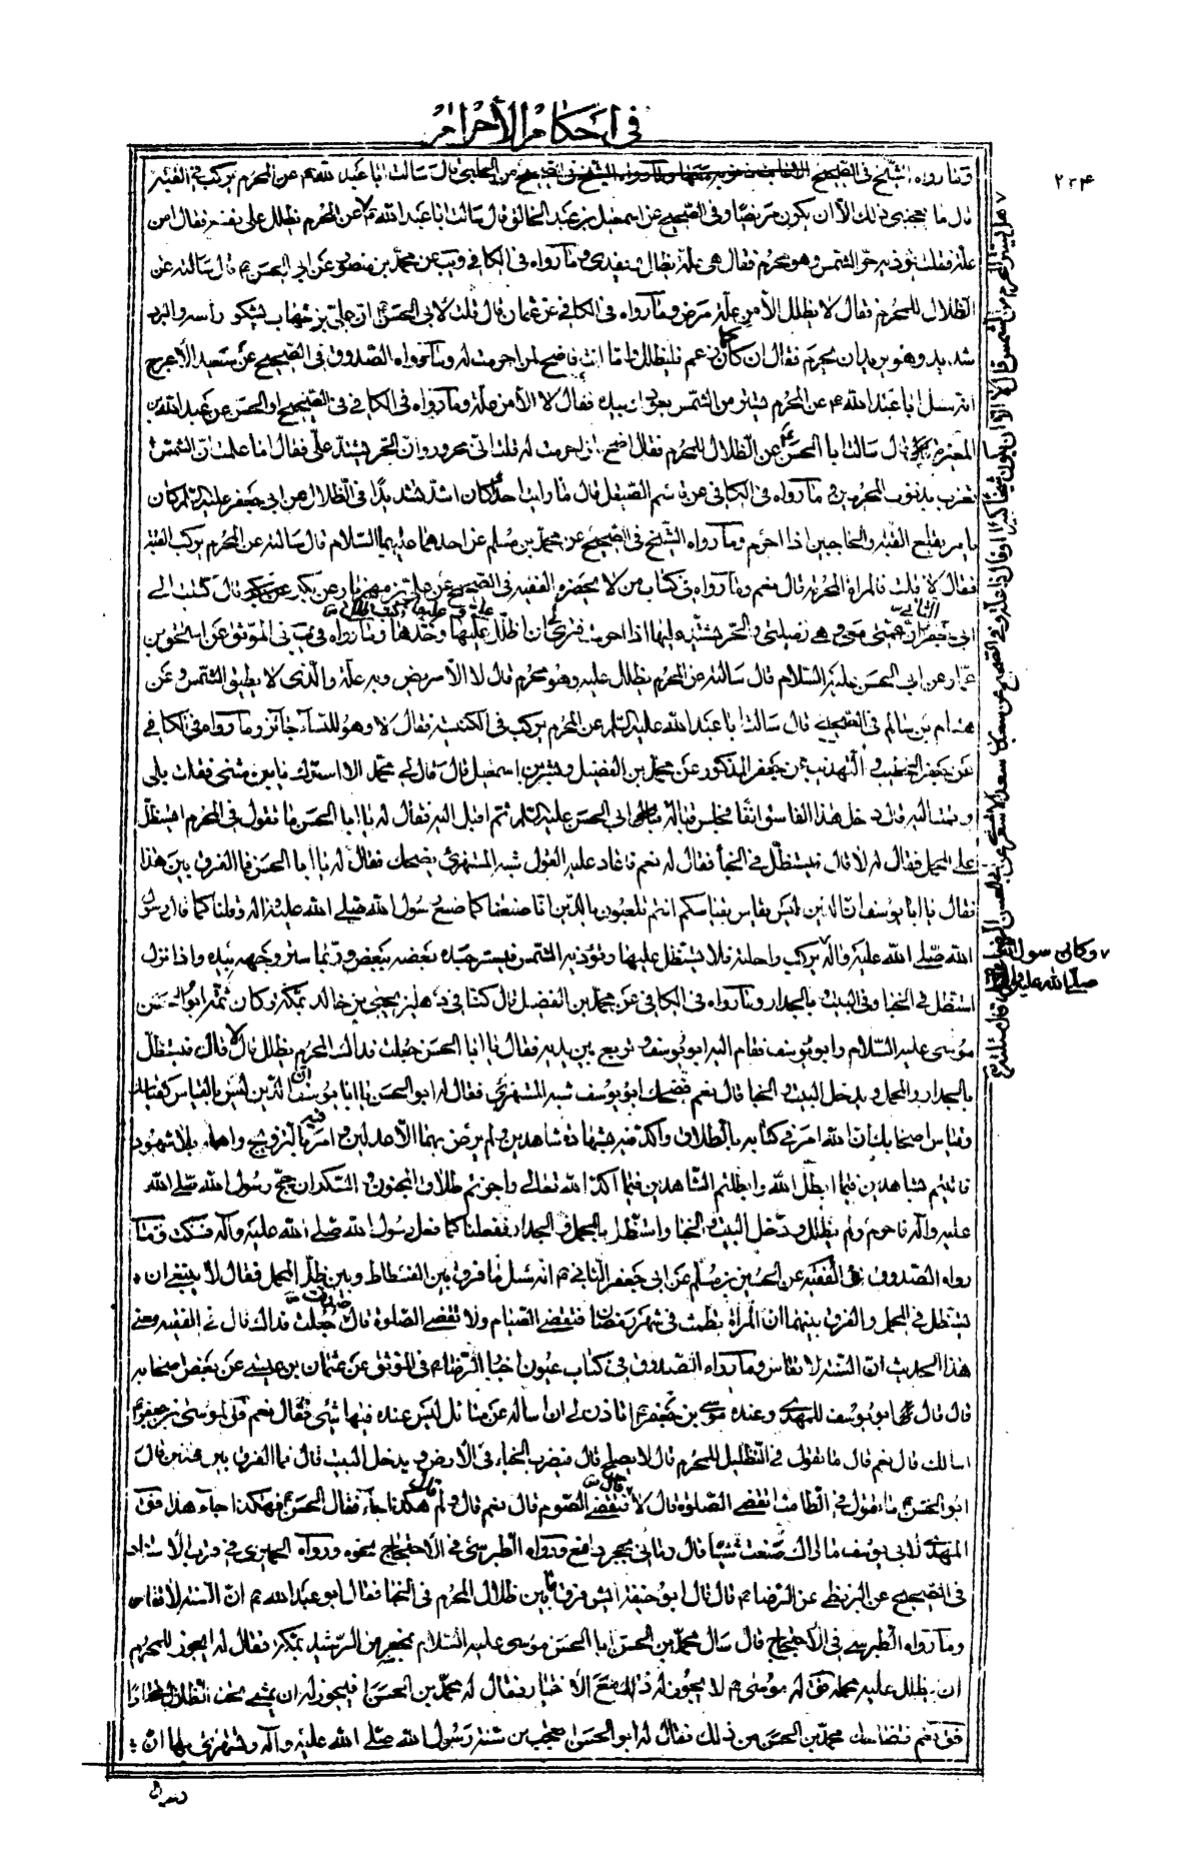 في احكام الأحرام
٢٣۴
وما رواه الشيخ في الصحيح عن الحلبي قال سألت ابا عبد الله ع عن المحرم يركب في القبة
قال ما يعجبني ذلك الا ان يكون مريضا وفي الصحيح عن اسمعيل بن عبد الخالق قال سالت ابا عبد الله ع عن المحرم يظلل على نفسه فقال امن
علة فقلت يؤذيه حر الشمس وهو محرم فقال هي علة يظلل ويفدي وما رواه في الكافي ويب عن محمد بن منصور عن ابي الحسن ع قال سالته عن
الظلال للمحرم فقال لا يظلل الا من علة مرض وما رواه في الكافي عن عثمان قال قلت لابي الحسن ع ان علي بن شهاب يشكو راسه والبرد
شديد وهو يريد ان يحرم فقال ان كان كما زعم فليظلل واما انت فاضح لمن احرمت له وما رواه الصدوق في الصحيح عن سعيد الأعرج
انه سئل ابا عبد الله ع عن المحرم يستتر من الشمس بعود وبيده فقال لا الا من علة وما رواه في الكافي في الصحيح او الحسن عن عبد الله بن
المغيرة قال سالت ابا الحسن ع عن الظلال للمحرم فقال اضح لمن احرمت له قلت اني محرور وان الحر يشتد علي فقال اما علمت ان الشمس
تغرب بذنوب المحرمين وما رواه في الكافي عن قاسم الصيقل قال ما رايت احدا كان اشد تشديدا في الظلال من ابي جعفر عليه السلام كان
يامر بقلع القبة والحاجبين اذا احرم وما رواه الشيخ في الصحيح عن محمد بن مسلم عن احدهما عليهما السلام قال سالته عن المحرم يركب القبة
فقال لا قلت فالمراة المحرمة قال نعم وما رواه في كتاب من لا يحضره الفقيه في الصحيح عن علي بن مهزيار عن بكر قال كتبت الى
ابي جعفر الثاني ان عمتي معي وهي زميلتي والحر يشتد عليها اذا احرمت فترى ان اظلل علي وعليها فكتب ظلل عليها وحدها وما رواه في يب في الموثق عن اسحق بن
عمار عن ابي الحسن عليه السلام قال سالته عن المحرم يظلل عليه وهو محرم قال لا الا مريض او من به علة والذي لا يطيق الشمس وعن
هشام بن سالم في الصحيح قال سالت ابا عبد الله عليه السلام عن المحرم يركب في الكنيسة فقال لا وهو للنساء جائز وما رواه في الكافي
عن جعفر الخطيب و التهذيب عن جعفر المذكور عن محمد بن الفضيل وبشر بن اسمعيل قال قال لي محمد الا اسرك يابن مثنى فقلت بلى
وقمت اليه قال دخل هذا الفاسق انفا فجلس قبالة ابي الحسن عليه السلام ثم اقبل اليه فقال له يا ابا الحسن ما تقول في المحرم ايستظل
على المحمل فقال له لا قال فيستظل في الخبأ فقال له نعم فاعاد عليه القول شبه المستهزئ يضحك فقال له يا ابا الحسن فما الفرق بين هذا
فقال يا ابا يوسف ان الدين ليس يقاس بقياسكم انتم تلعبون بالدين انا صنعنا كما صنع رسول الله صلى الله عليه واله وقلنا كما قال رسول
الله صلى الله عليه واله يركب راحلته فلا يستظل عليها وتؤذيه الشمس فيستر جسده بعضه ببعض وربما ستر وجهه بيده واذا نزل
استظل في الخبا وفي البيت وبالجدار وما رواه في الكافي عن محمد بن الفضيل قال كنا في دهليز يحيى بن خالد بمكة وكان ثمة ابو الحسن
موسى عليه السلام وابو يوسف فقام اليه ابو يوسف وتربع بين يديه فقال يا ابا الحسن جعلت فداك المحرم يظلل قال لا قال فيستظل
بالجدار والمحمل ويدخل البيت و الخبا قال نعم فضحك ابو يوسف شبه المستهزئ فقال له ابو الحسن يا ابا يوسف ان الدين ليس بالقياس كقياسك
وقياس اصحابك ان الله امر في كتابه بالطلاق واكد فيه بشهادة شاهدين ولم يرض بهما الا عدلين وامر بالتزويج واهمله بلا شهود
فاتيتم بشاهدين فيما ابطل الله وابطلتم الشاهدين فيما اكد الله تعالى واجزتم طلاق المجنون و السكران حج رسول الله صلى الله
عليه وآله فاحرم ولم يظلل ودخل البيت و الخبا واستظل بالمحمل و الجدار ففعلنا كما فعل رسول الله صلى الله عليه وآله فسكت وما
رواه الصدوق في الفقيه عن الحسين بن مسلم عن ابي جعفر الثاني ع انه سئل ما فرق بين الفسطاط وبين ظل المحمل فقال لا ينبغي ان
يستظل في المحمل والفرق بينهما ان المراة تطمث في شهر رمضان فتقضي الصيام ولا تقضي الصلوة قال صدقت جعلت فداك قال في الفقيه ومعنى
هذا الحديث ان السنة لا تقاس وما رواه الصدوق في كتاب عيون اخبار الرضا ع في الموثق عن عثمان بن عيسى عن بعض اصحابه
قال قال ابو يوسف للمهدي وعنده موسى بن جعفر ع اتاذن لي ان اساله عن مسائل ليس عنده فيها شئ فقال نعم فقال لموسى بن جعفر ع
اسالك قال نعم قال ما تقول في التظليل للمحرم قال لا يصلح قال فيضرب الخباء في الأرض و يدخل البيت قال نعم قال فما الفرق بين هذين قال
ابو الحسن ع ما تقول في الطامث اتقضي الصلوة قال لا قال فتقضي الصوم قال نعم قال ولم قال هكذا جاء فقال ابو الحسن ع فهكذا جاء هذا فق
المهدي لابي يوسف ما اراك صنعت شيئا قال رماني بحجر دامغ ورواه الطبرسي في الأحتجاج نحوه ورواه الحميري في قرب الأسناد
في الصحيح عن البزنطي عن الرضا ع قال قال ابو حنيفة ايش فرق ما بين ظلال المحرم في الخبا فقال ابو عبد الله ع ان السنة لا تقاس
وما رواه الطبرسي في الأحتجاج قال سال محمد بن الحسن ابا الحسن موسى عليه السلام بمحضر من الرشيد بمكة فقال له ايجوز للمحرم
ان يظلل عليه محمله فق له موسى ع لا يجوز له ذلك مع الأختيار فقال له محمد بن الحسن افيجوز له ان يمشي تحت الظلال مختارا
فق نعم فتضاحك محمد بن الحسن من ذلك فقال له ابو الحسن ع اتعجب من سنة رسول الله صلى الله عليه وآله وتستهزئ بها ان
هل يستتر المحرم من الشمس قال لا الا ان يكون شيخا كبيرا او قال ذا علة وفي الصحيح عن سعد بن سعد الاشعري عن ابي الحسن الرضا ع قال سئلته
وكان رسول الله
صلى الله عليه وآله